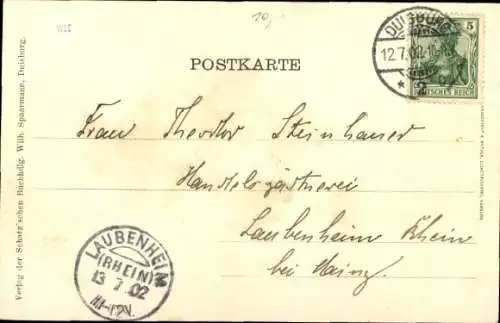 10,
DUISBURG
12.7.02.10-11V.
* 2
5
DEUTSCHES REICH
POSTKARTE
Frau Theodor Steinhauer
Handelsgärtnerei
Laubenheim Rhein
bei Mainz.
LAUBENHEIM
(RHEIN)
13 7 02
11-12V.
Verlag der Scharz'schen Buchhdlg. Wilh. Spaarmann, Duisburg.